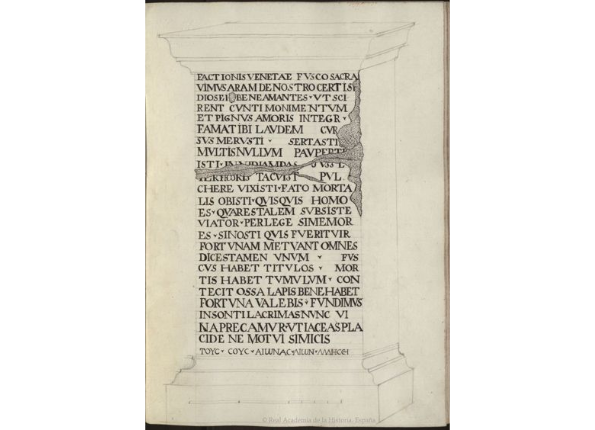 FACTIONIS VENETAE FVSCO SACRA
VIMVS ARAM DE NOSTRO CERTI ST
DIOSEI BENE AMANTES · VT SCI
RENT CVNTI MONIMENTVM
ET PIGNVS AMORIS INTEGR ·
FAMA TIBI LAVDEM CVR
SVS MERVSTI · SERTASTI
MVLTIS NVLLVM PAVPERT
ISTI ·
TACVIST · PVL
CHERE VIXISTI · FATO MORTA
LIS OBISTI · QVISQVIS HOMO
ES · QVARES TALEM SVBSISTE
VIATOR · PERLEGE SI MEMOR
ES · SI NOSTI QVIS FVERIT VIR
FORTVNAM METVANT OMNES
DICES TAMEN VNVM · FVS
CVS HABET TITVLOS · MOR
TIS HABET TVMVLVM · CON
TECIT OSSA LAPIS BENE HABET
FORTVNA VALEBIS · FVNDIMVS
INSONTI LACRIMAS NVNC VI
NA PRECAMVR VT IACEAS PLA
CIDE NE MO TVI SIMICIS
© Real Academia de la Historia. España